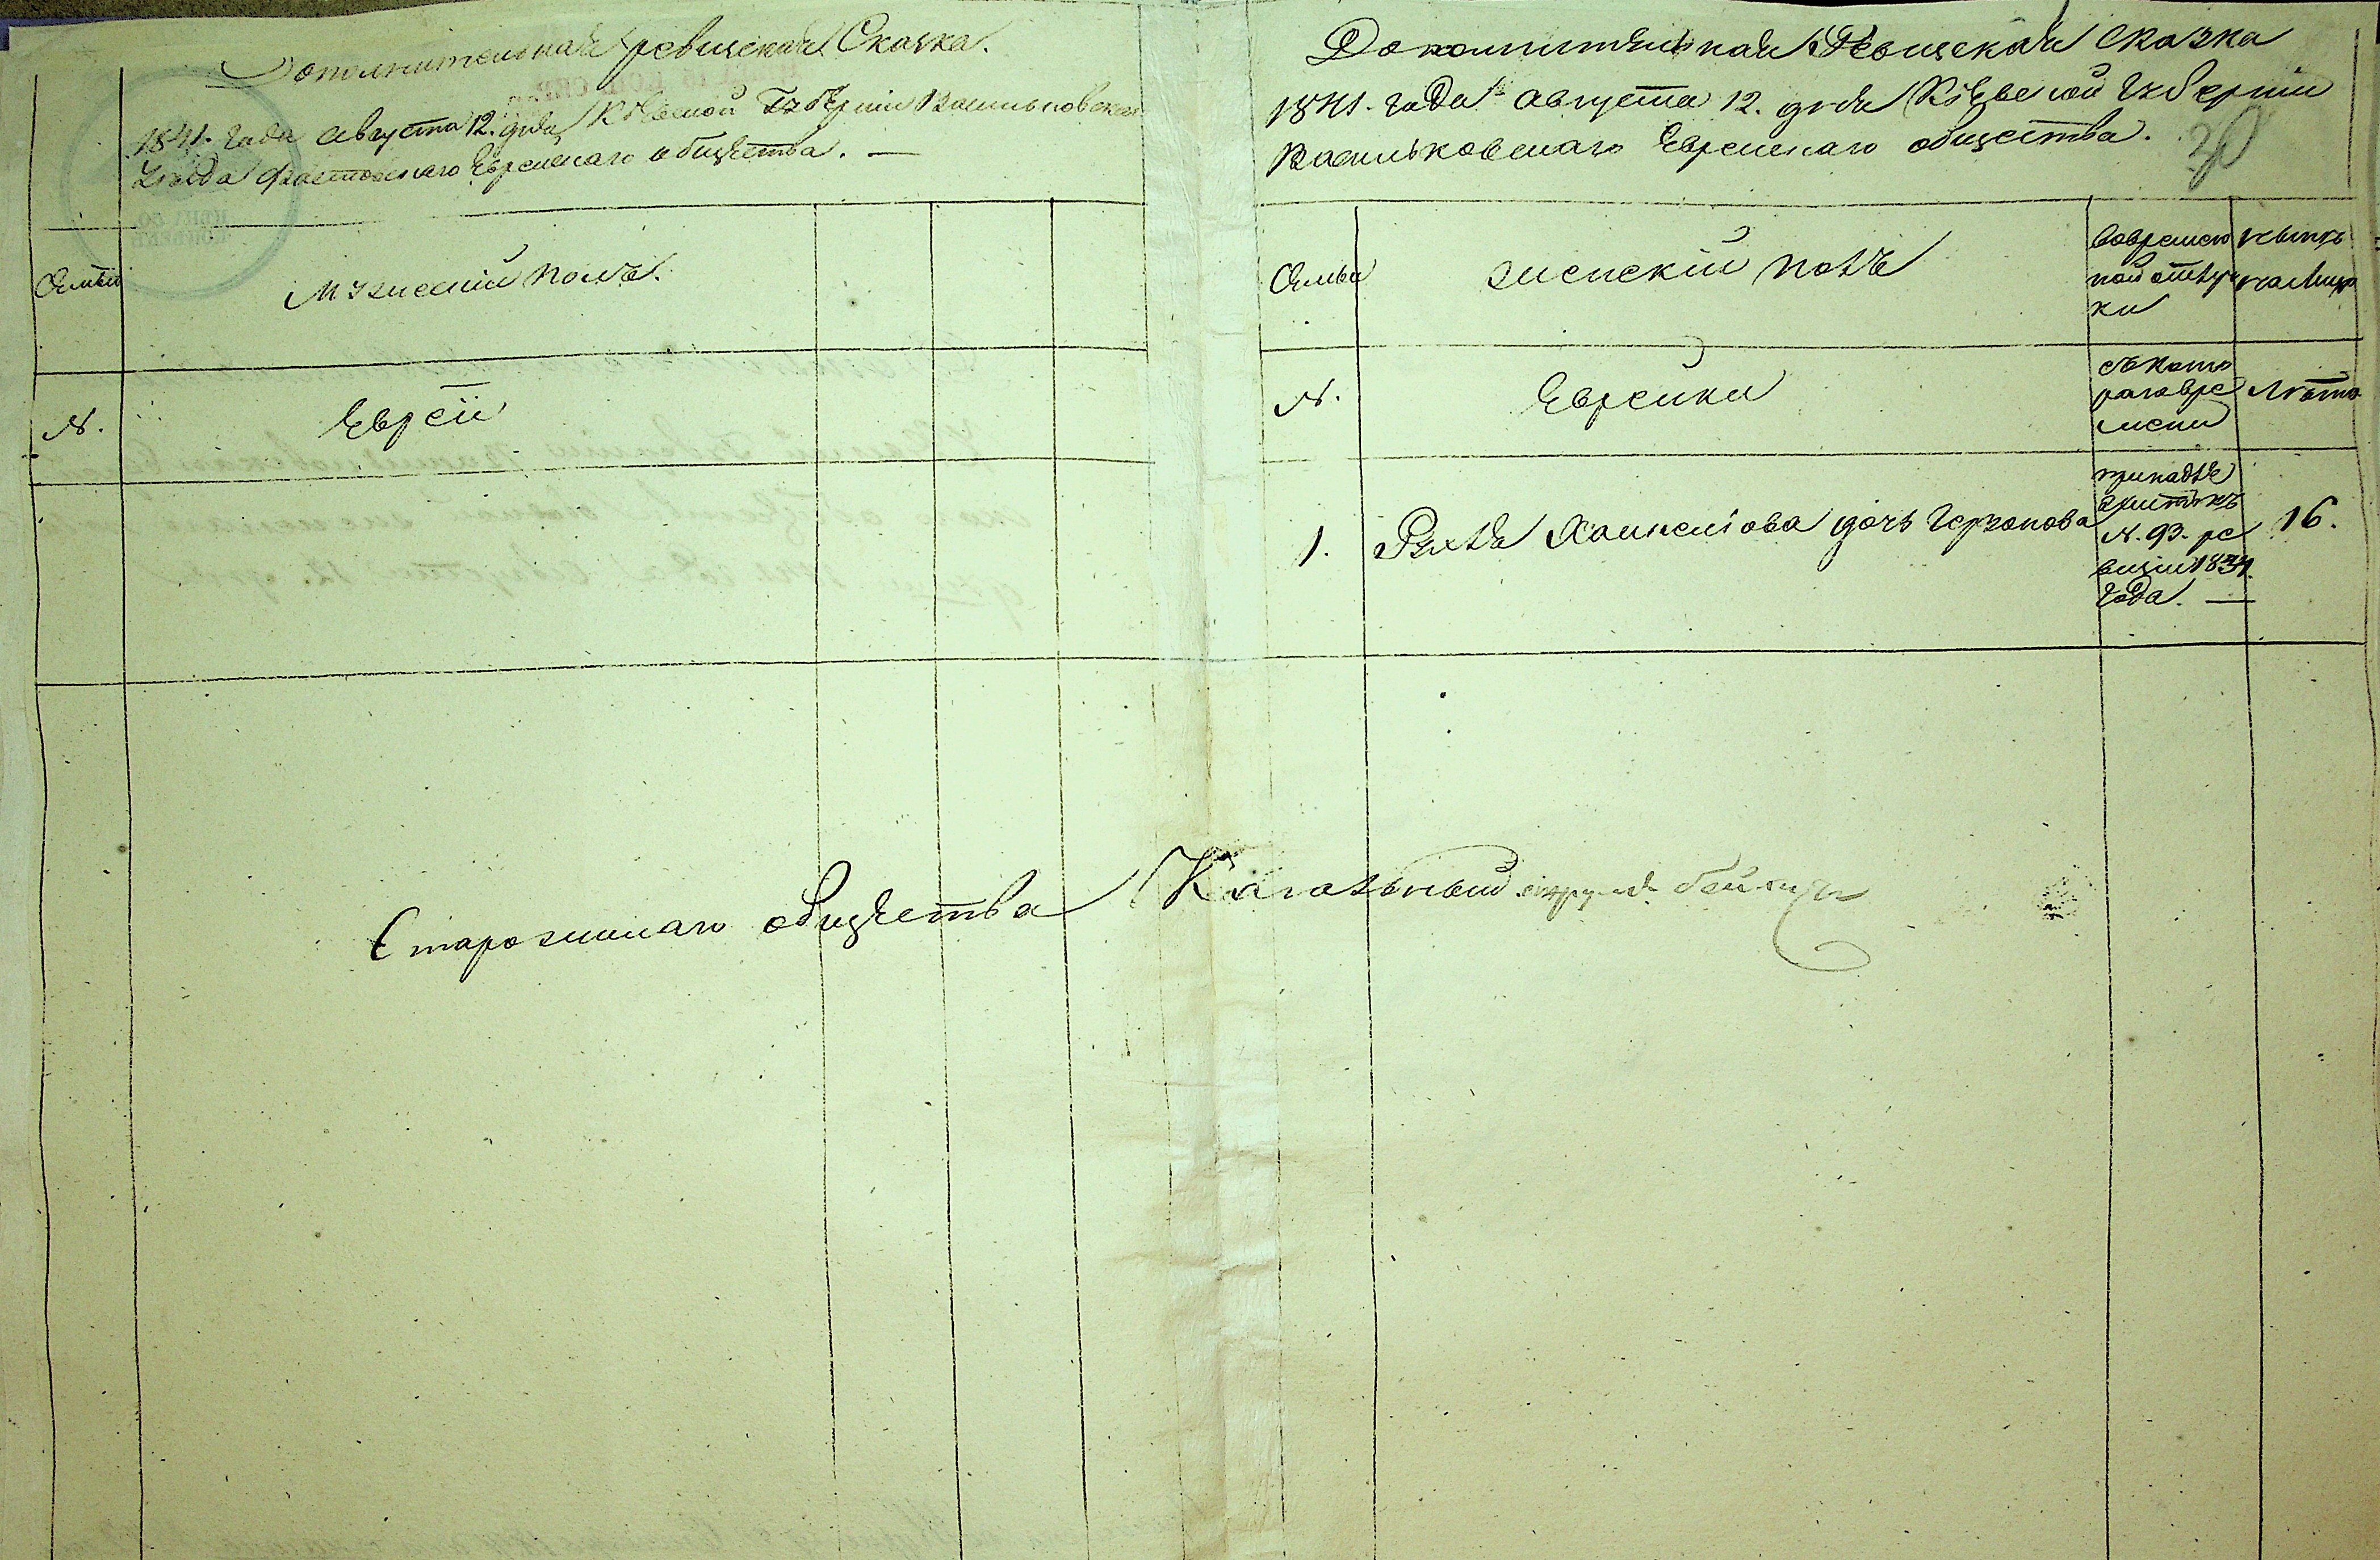 Дополнительная ревизская Сказка.
1841. года августа 12. дня Кіевской Губерніи Васильковскаго
Уезда Фастовскаго Еврейскаго общества. —
Семьи
мужескій полъ.
N.
Евреи
Дополнительная Ревизская сказка
1841. года августа 12. дня Кіевской губерніи
Васильковскаго Еврейскаго общества.
30
Семьи
женскій полъ
вовремен
ной отлуч
ки
нынѣ
налицо
N.
Еврейки
съкото
раговре
мени
Лѣта
1.
Рухля Хаимкелiова дочь Герзонова
принадле
житъ къ
N. 93. ре
визіи 1834.
года. —
16.
Старозинаго общества Кагальный